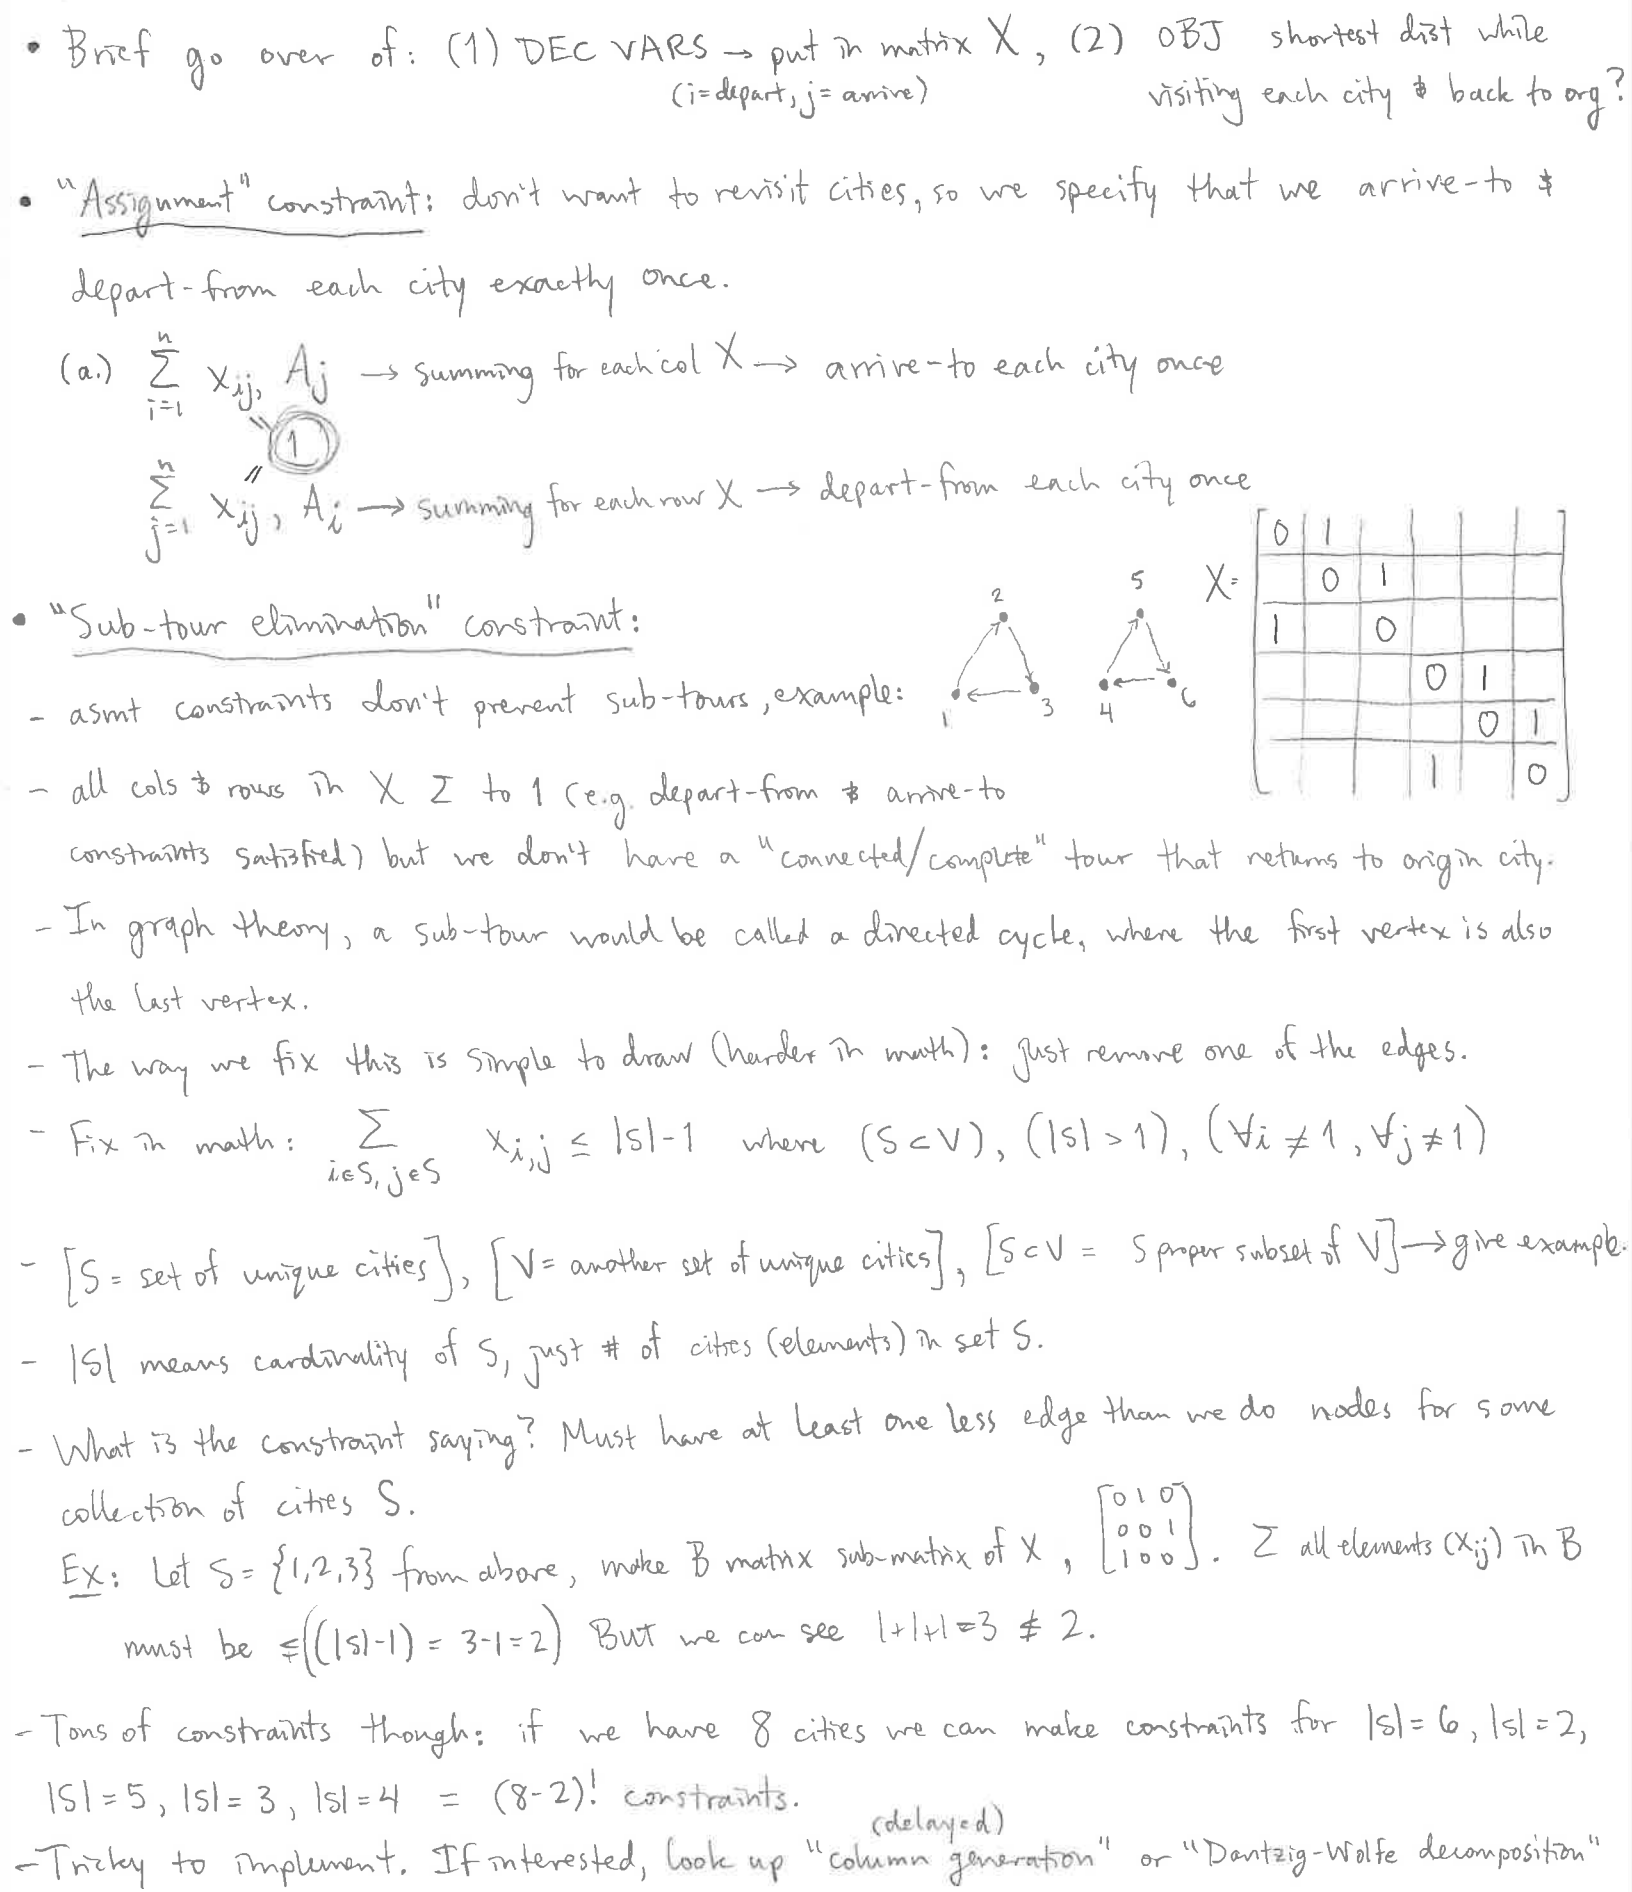 • Brief go over of: (1) DEC VARS → put in matrix X, (2) OBJ shortest dist while
(i=depart, j=arrive) visiting each city & back to org?
• "Assignment" constraint: don't want to revisit cities, so we specify that we arrive-to &
depart-from each city exactly once.
(a.) n Σ i=1 Xij, Aj → summing for each col X → arrive-to each city once
" 1 "
n Σ j=1 Xij, Ai → summing for each row X → depart-from each city once
• "Sub-tour elimination" constraint:
- asmt constraints don't prevent sub-tours, example:
1 2 3 4 5 6
X=
0 1
0 1
1 0
0 1
0 1
1 0
- all cols & rows in X Σ to 1 (e.g. depart-from & arrive-to
constraints satisfied) but we don't have a "connected/complete" tour that returns to origin city.
- In graph theory, a sub-tour would be called a directed cycle, where the first vertex is also
the last vertex.
- The way we fix this is simple to draw (harder in math): just remove one of the edges.
- Fix in math: Σ i∈S, j∈S Xi,j ≤ |S|-1 where (S⊂V), (|S|>1), (∀i≠1, ∀j≠1)
- [S = set of unique cities], [V = another set of unique cities], [S⊂V = S proper subset of V] → give example.
- |S| means cardinality of S, just # of cities (elements) in set S.
- What is the constraint saying? Must have at least one less edge than we do nodes for some
collection of cities S.
Ex: Let S = {1,2,3} from above, make B matrix sub-matrix of X, [0 1 0
0 0 1
1 0 0]. Σ all elements (Xij) in B
must be ≤((|S|-1) = 3-1=2) But we can see 1+1+1=3 ≰ 2.
- Tons of constraints though: if we have 8 cities we can make constraints for |S|=6, |S|=2,
|S|=5, |S|=3, |S|=4 = (8-2)! constraints.
(delayed)
- Tricky to implement. If interested, look up "column generation" or "Dantzig-Wolfe decomposition"